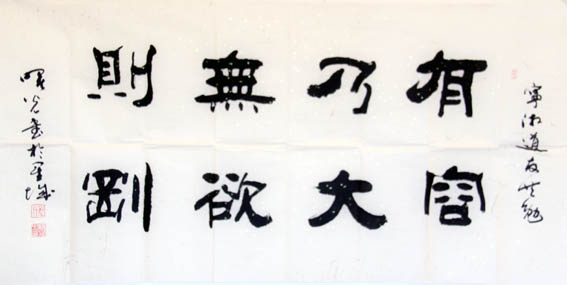 寧道友共勉
有容
乃大
無欲
則剛
光書於星城